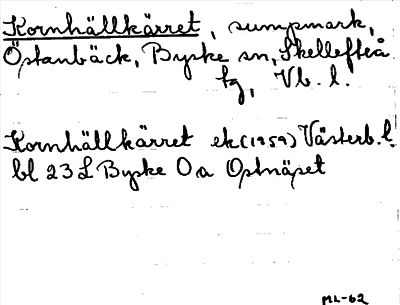 Kornhällkärret, sumpmark,
Östanbäck, Byske sn, Skellefteå
tg, Vb. l.
Kornhällkärret ek (1959) Västerb. l.
bl 23 L Byske O a Ostnäset
ML-62